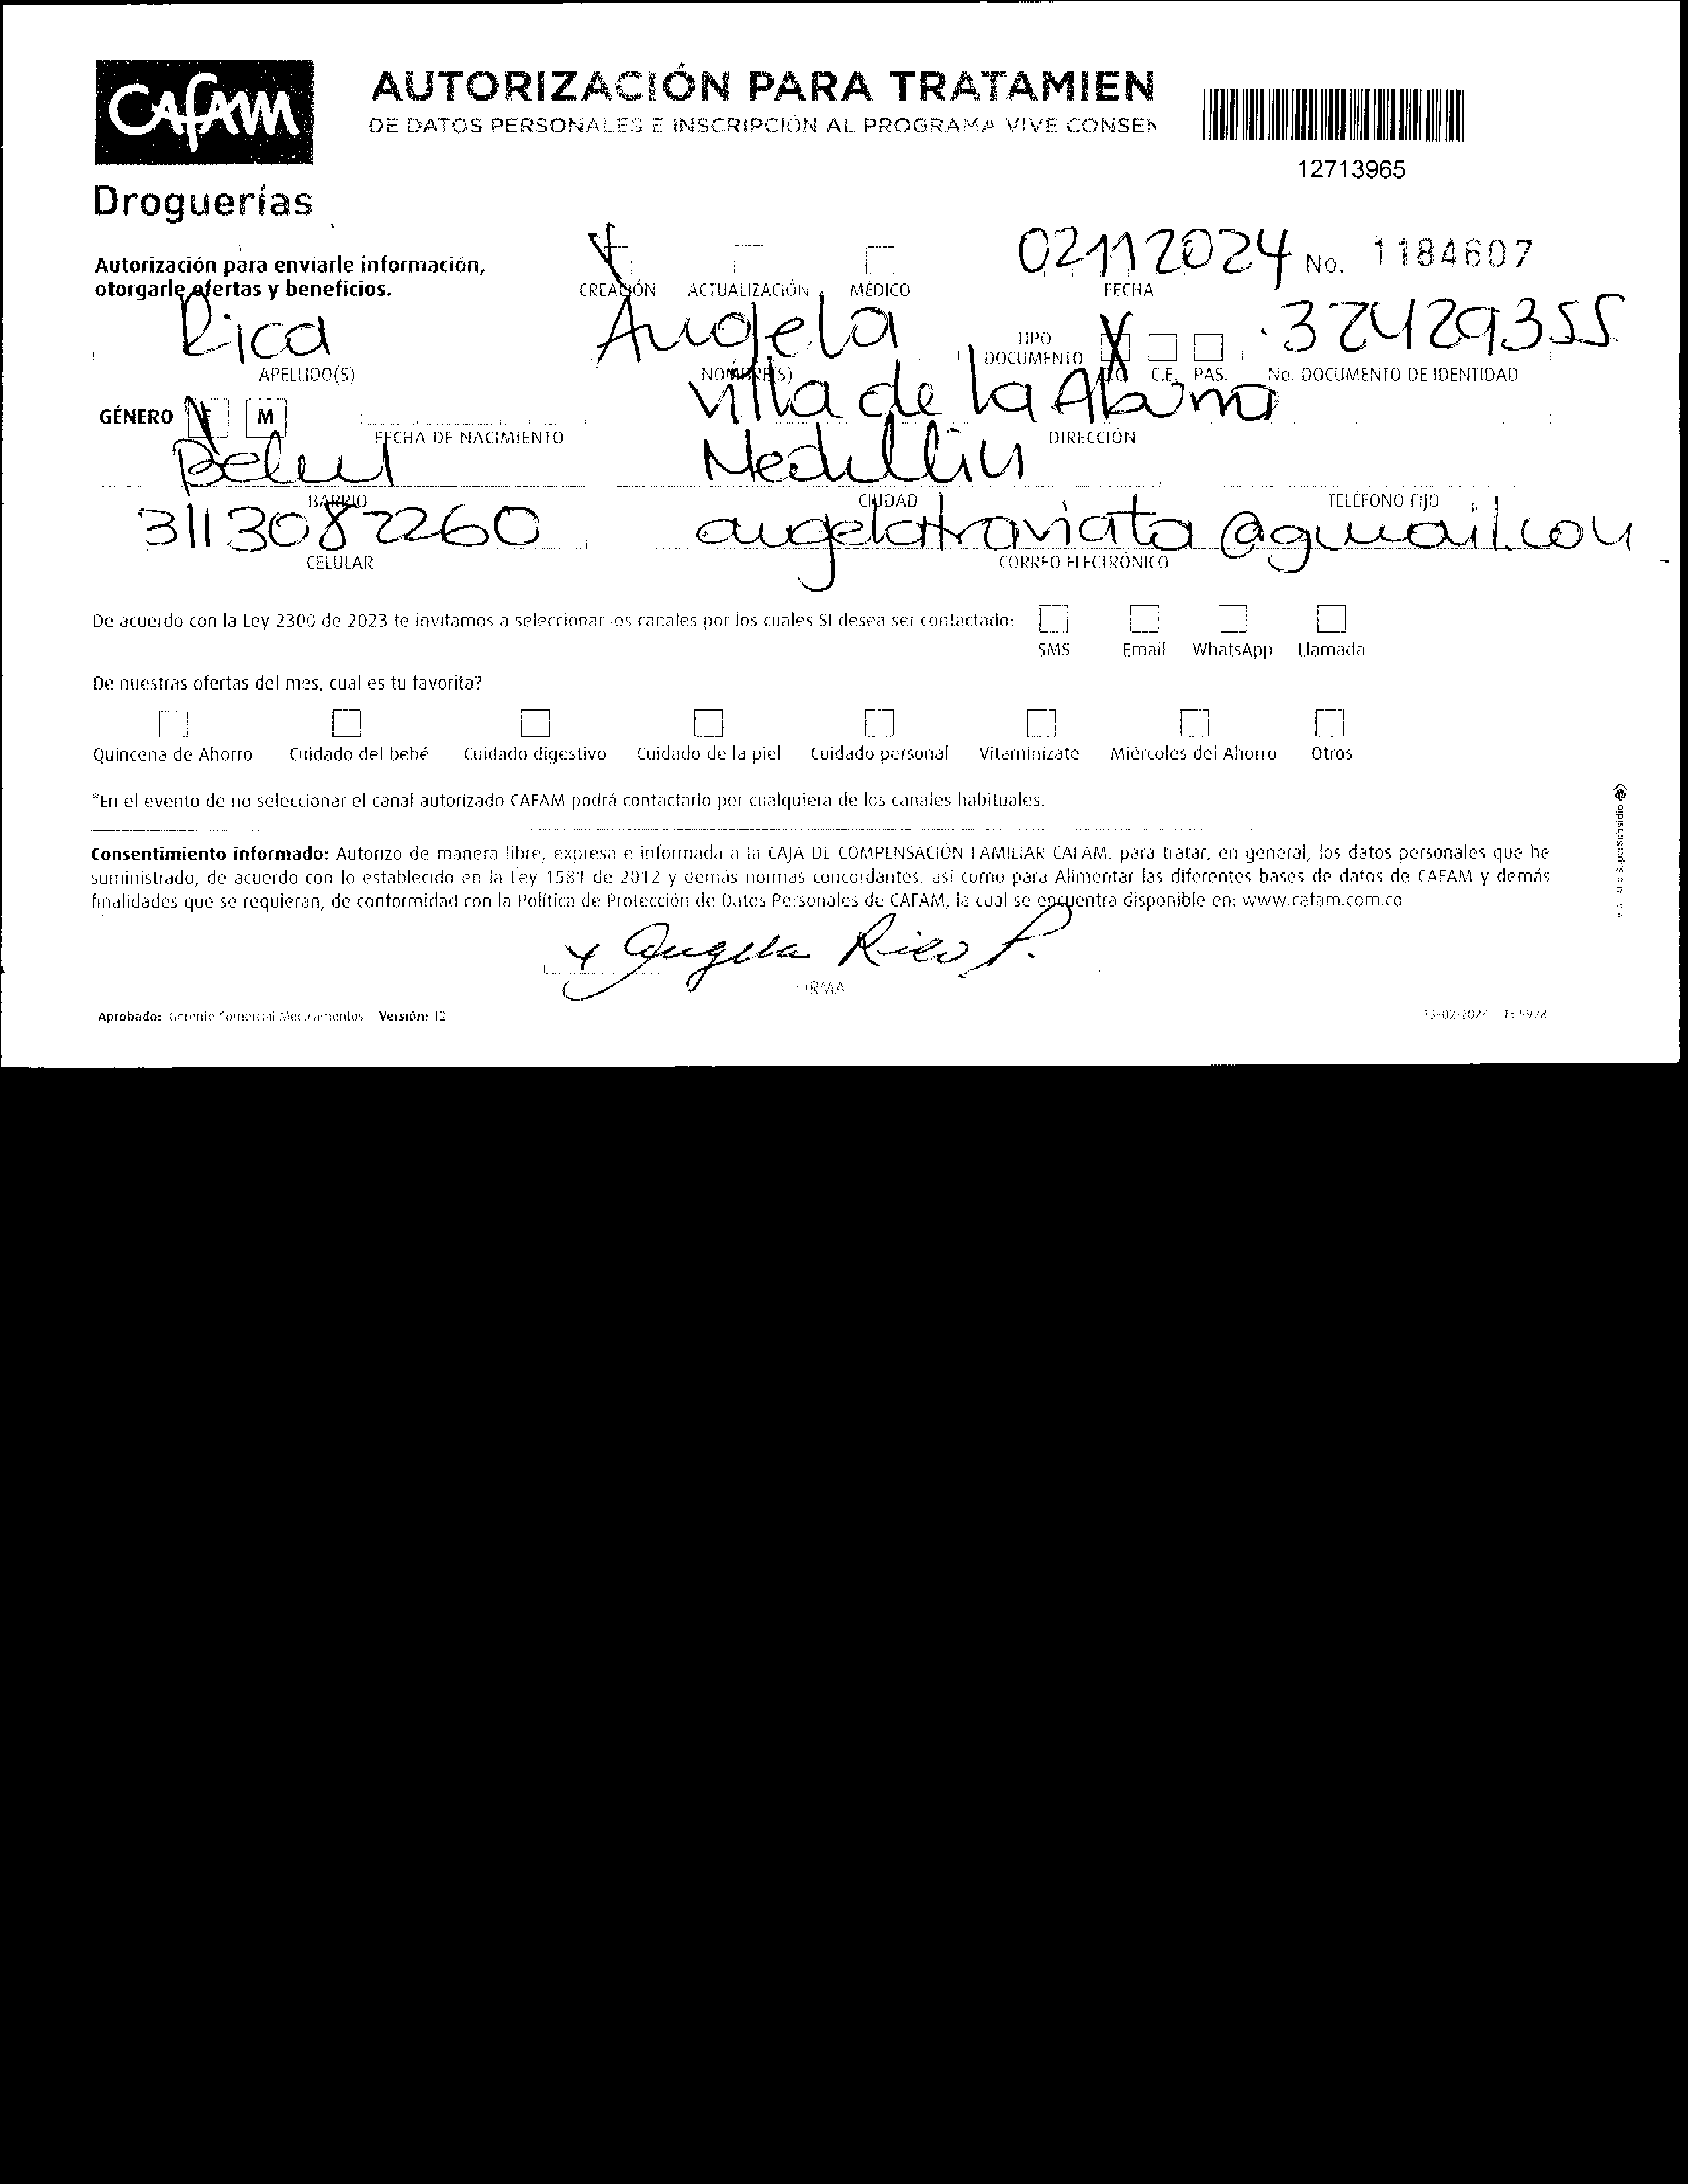 CAFAM
Droguerías
AUTORIZACIÓN PARA TRATAMIEN
DE DATOS PERSONALES E INSCRIPCIÓN AL PROGRAMA VIVE CONSEN
12713965
Autorización para enviarle información,
otorgarle ofertas y beneficios.
X
CREACIÓN ACTUALIZACIÓN MÉDICO
02112024
FECHA
No. 1184607
Rica
APELLIDO(S)
Angela
NOMBRE(S)
TIPO
DOCUMENTO
X
C.E. PAS.
32429355
No. DOCUMENTO DE IDENTIDAD
GÉNERO X M
FECHA DE NACIMIENTO
Villa de la
DIRECCIÓN
Belen
BARRIO
Medellin
CIUDAD
TELÉFONO FIJO
3113082260
CELULAR
angelatraviata@gmail.com
CORREO ELECTRÓNICO
De acuerdo con la Ley 2300 de 2023 te invitamos a seleccionar los canales por los cuales SI desea ser contactado:
SMS Email WhatsApp Llamada
De nuestras ofertas del mes, cual es tu favorita?
Quincena de Ahorro Cuidado del bebé Cuidado digestivo Cuidado de la piel Cuidado personal Vitaminízate Miércoles del Ahorro Otros
*En el evento de no seleccionar el canal autorizado CAFAM podrá contactarlo por cualquiera de los canales habituales.
Consentimiento informado: Autorizo de manera libre, expresa e informada a la CAJA DE COMPENSACIÓN FAMILIAR CAFAM, para tratar, en general, los datos personales que he
suministrado, de acuerdo con lo establecido en la Ley 1581 de 2012 y demás normas concordantes, así como para Alimentar las diferentes bases de datos de CAFAM y demás
finalidades que se requieran, de conformidad con la Política de Protección de Datos Personales de CAFAM, la cual se encuentra disponible en: www.cafam.com.co
x Angela Rico P.
FIRMA
Aprobado: Gerente Comercial Medicamentos Versión: 12
13-02-2024 T: 5928